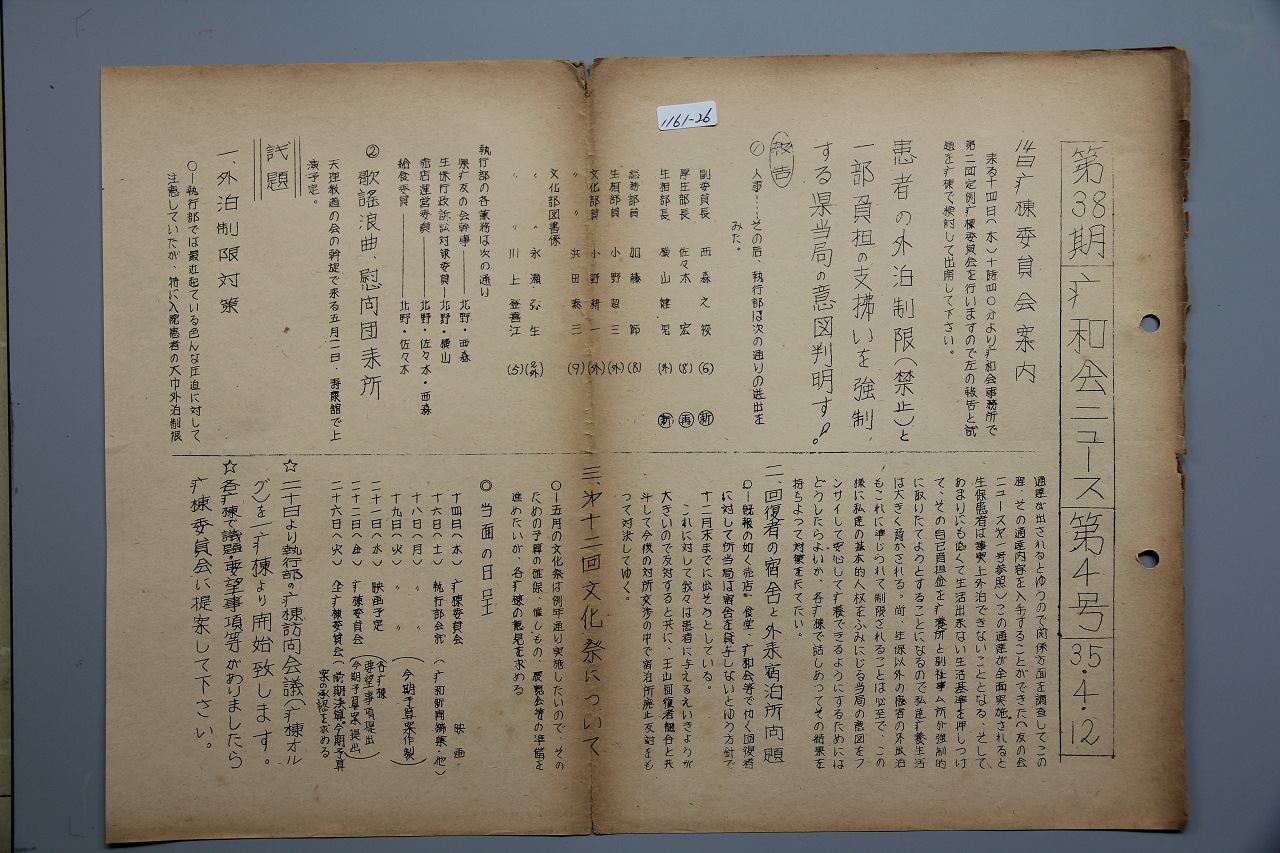 1161-26
第38期 疒和会ニュース 第4号 35.4.12
14日疒棟委員会案内
来る十四日(木)十時四〇分より疒和会事務所で
第二回定例疒棟委員会を行いますので左の報告と試
題を疒棟で検討して出席して下さい。
患者の外泊制限(禁止)と
一部負担の支拂いを強制
する県当局の意図判明す!。
報告
① 人事……その后、執行部は次の通りの進出を
みた。
副委員長 西森之 (6) 新
厚生部長 佐々木宏 (8) 再
生相部長 横山健児 (外) 新
総務部員 加藤節 (8)
生相部員 小野留三 (外)
文化部員 小野耕一 (外)
〃 〃 浜田泰三 (9)
文化部図書係
〃 〃 永瀬弥生 (2外)
〃 〃 川上登喜江 (5)
執行部の各兼務は次の通り
県疒友の会幹事――北野・西森
生保行政訴訟対策委員―北野・横山
売店運営委員――北野・佐々木・西森
給食委員――北野・佐々木
② 歌謡浪曲、慰问団来所
天理教道の会の幹旋で来る五月二日・寿泉舘で上
演予定。
試題
一、外泊制限対策
○―執行部では最近起ている色んな圧迫に対して
注意していたが、特に入院患者の大巾外泊制限
通達が出されるとゆうので関係方面を調査してこの
程、その通達内容を入手することができた(友の会
ニュース第一号参照)この通達が全面実施されると
生保患者は事実上外泊できないこととなる、そして
あまりにも低くて生活出来ない生活基準を押しつけ
て、その自己負担金を疒養所と副社事ム所が強制的
に取りたててようとすることになるので私達疒養生活
は大きく脅かされる。尚、生保以外の患者の外出泊
もこれに準じられて制限されることは必至で、この
様に私達の基本的人权をふみにじる当局の意図をフ
ンサイして安心して疒養できるようにするためには
どうしたらよいか、各疒棟で話しあつてその結果を
持ちよつて対策をたてたい。
二、回復者の宿舎と外来宿泊所问題
○―既報の如く売店、食堂、疒和会等で仂く回復者
に対して所当局は宿舎を貸与しないとゆう方針で
十二月末までに出そうとしている。
これに対して我々は患者に与えるえいきようが
大きいので反対すると共に、王山回復者組合と共
斗して今後の対所交渉の中で宿泊所廃止反対をも
つて対決してゆく。
三、第十二回文化祭について
○―五月の文化祭は例年通り実施したいので、その
ための予算の確保、催しもの、展覧会等の準備を
進めたいが、各疒棟の意見を求める
◎ 当面の日呈
十四日(木) 疒棟委員会 映画
十六日(土) 執行部会試 (疒和新闻編集・他)
十八日(月) 〃 〃 (今期予算案作製)
十九日(火) 〃 〃
二十一日(木) 映画予定
二十二日(金) 疒棟委員会 (各疒棟要望事項提出) (今期予算案提出)
二十六日(火) 全疒棟委員会 (前期決算、今期予算案の承認を求める
☆ 二十日より執行部の疒棟訪问会議(疒棟オル
グ)を一疒棟より開始致します。
☆ 各疒棟で議題・要望事項等がありましたら
疒棟委員会に提案して下さい。